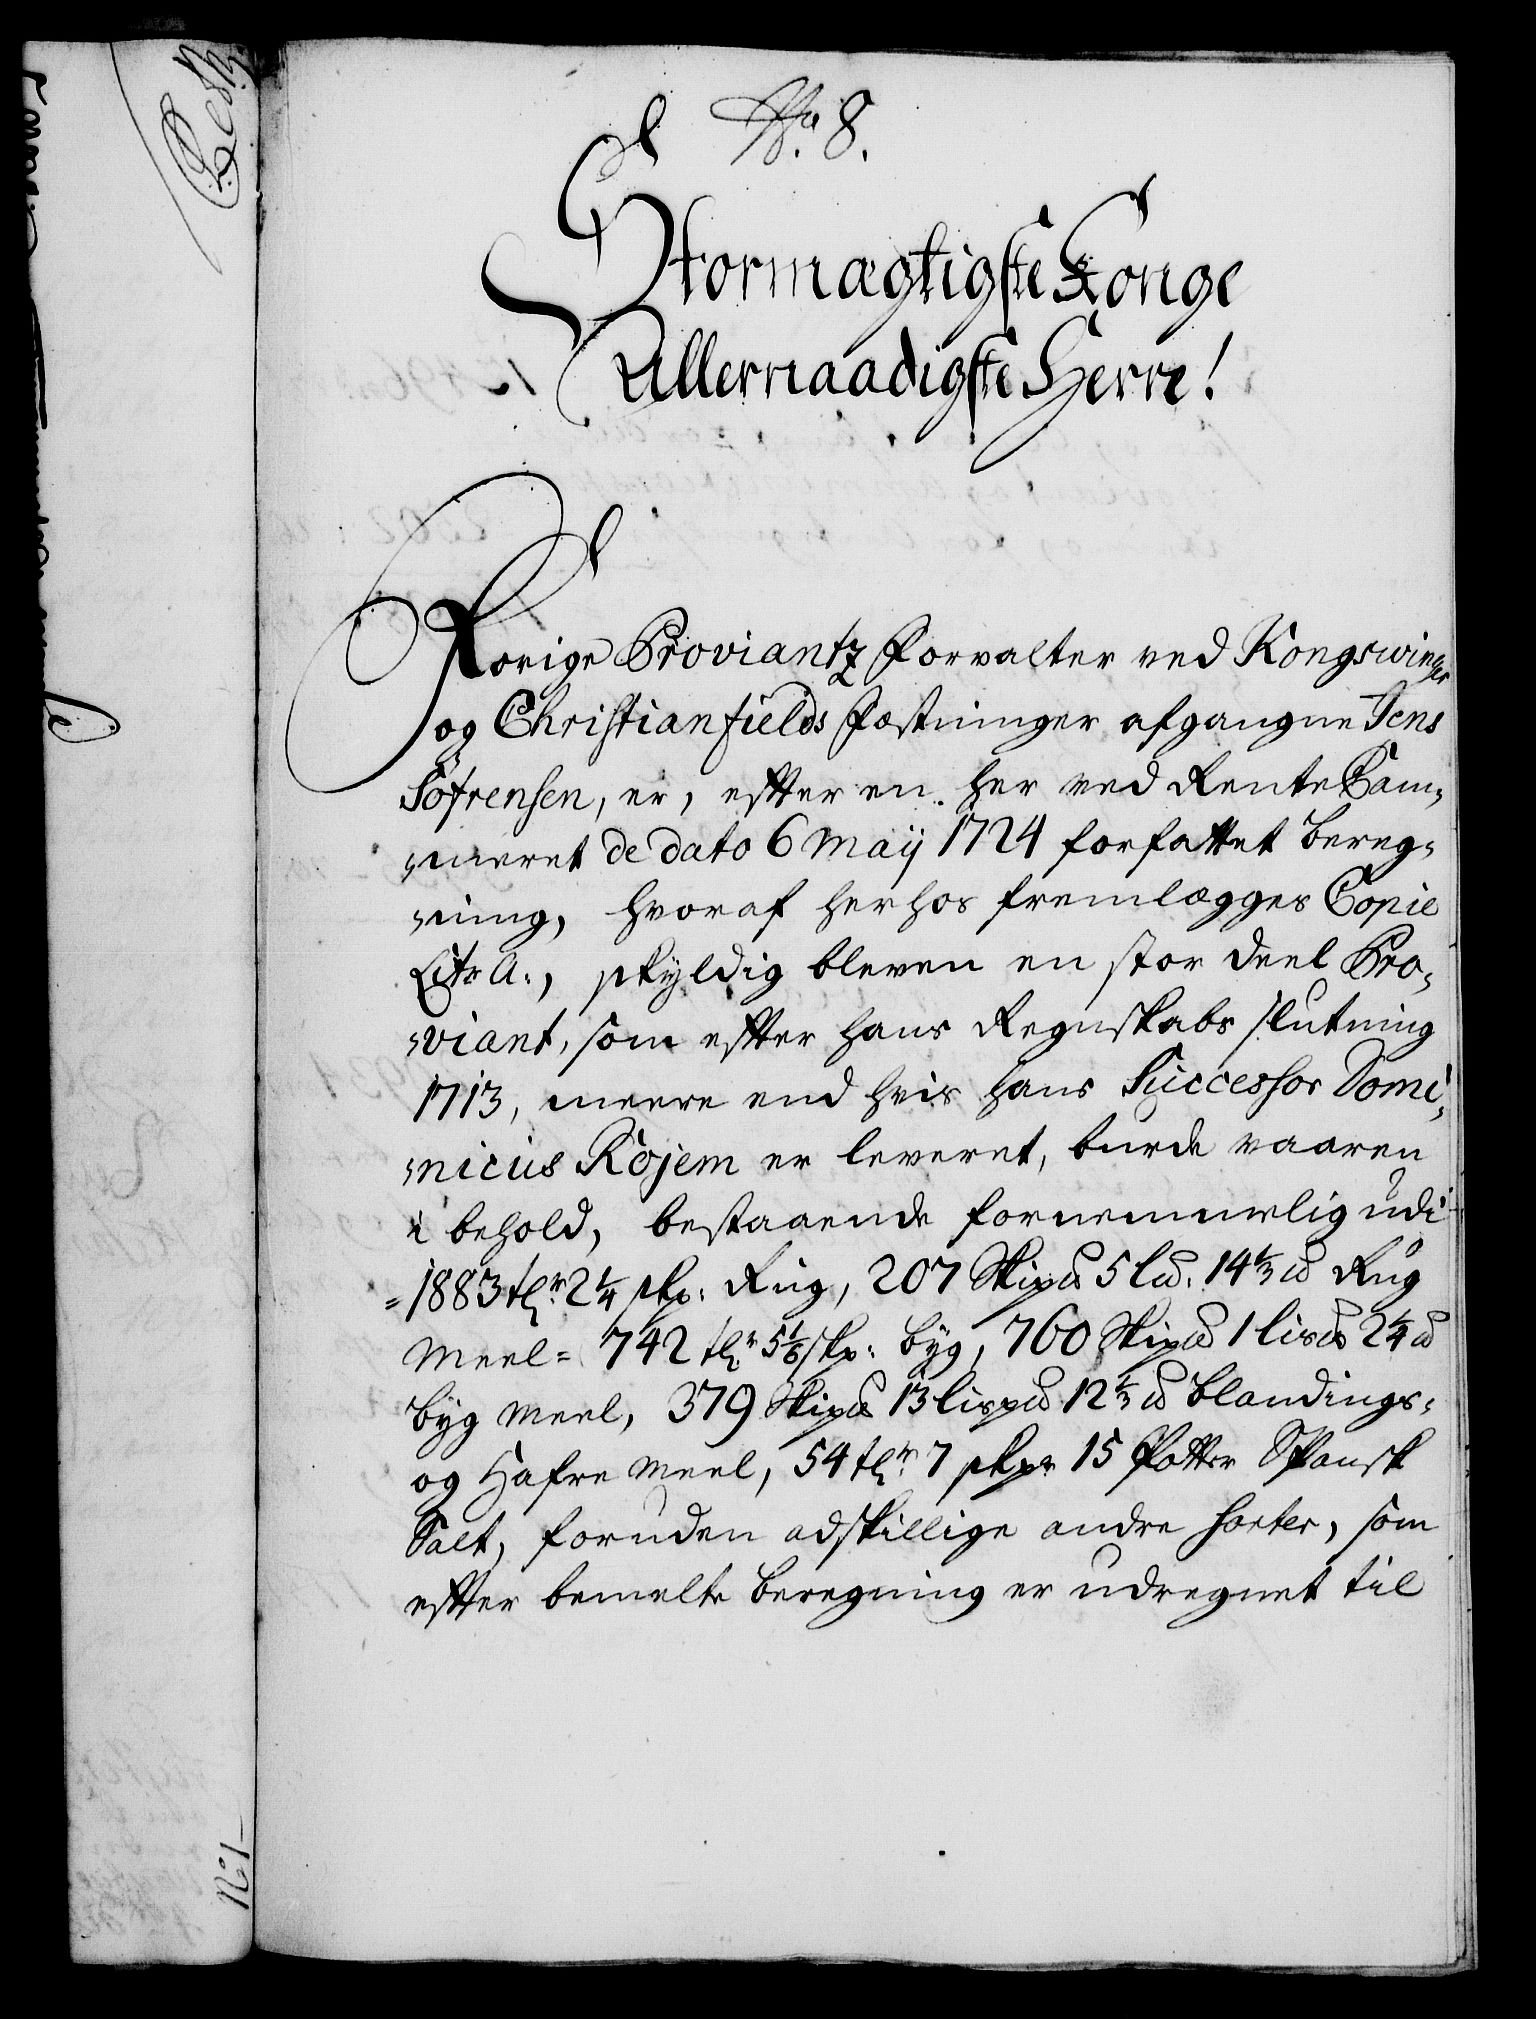 No. 8.
Stormægtigste Konge
Allernaadigste Herre!
Forige Proviantz Forvalter ved Kongswinger
og Christianfields Fæstninger afgangne Jens
Söfrensen, er, efter en her ved RenteCam-
-meret de dato 6 Maij 1724 forfattet bereg-
-ning, hvoraf herhos fremlægges Copie
Litr A:, skyldig bleven en stor deel Pro-
-viant, som efter hans Regnskabs slutning
1713, meere end hvis hans Successor Domi-
-nicus Röjem er leveret, burde vaaren
i behold, bestaaende fornemmelig udi
=1883 tlr. 2¼ skp: Rug, 207 Skipd 5 ld. 14⅓ d Rug
Meel= 742 tlr 5⅙ skp: byg, 760 Skipd 1 lispd 2¼ d
byg Meel, 379 Skipd 13 lispd 12⅓ d blandings-
og Hafre Meel, 54 tlr. 7 skpr 15 Potter Spansk
Salt, foruden adskillige andre sorter, som
efter bemelte beregning er udregnet til
No 1